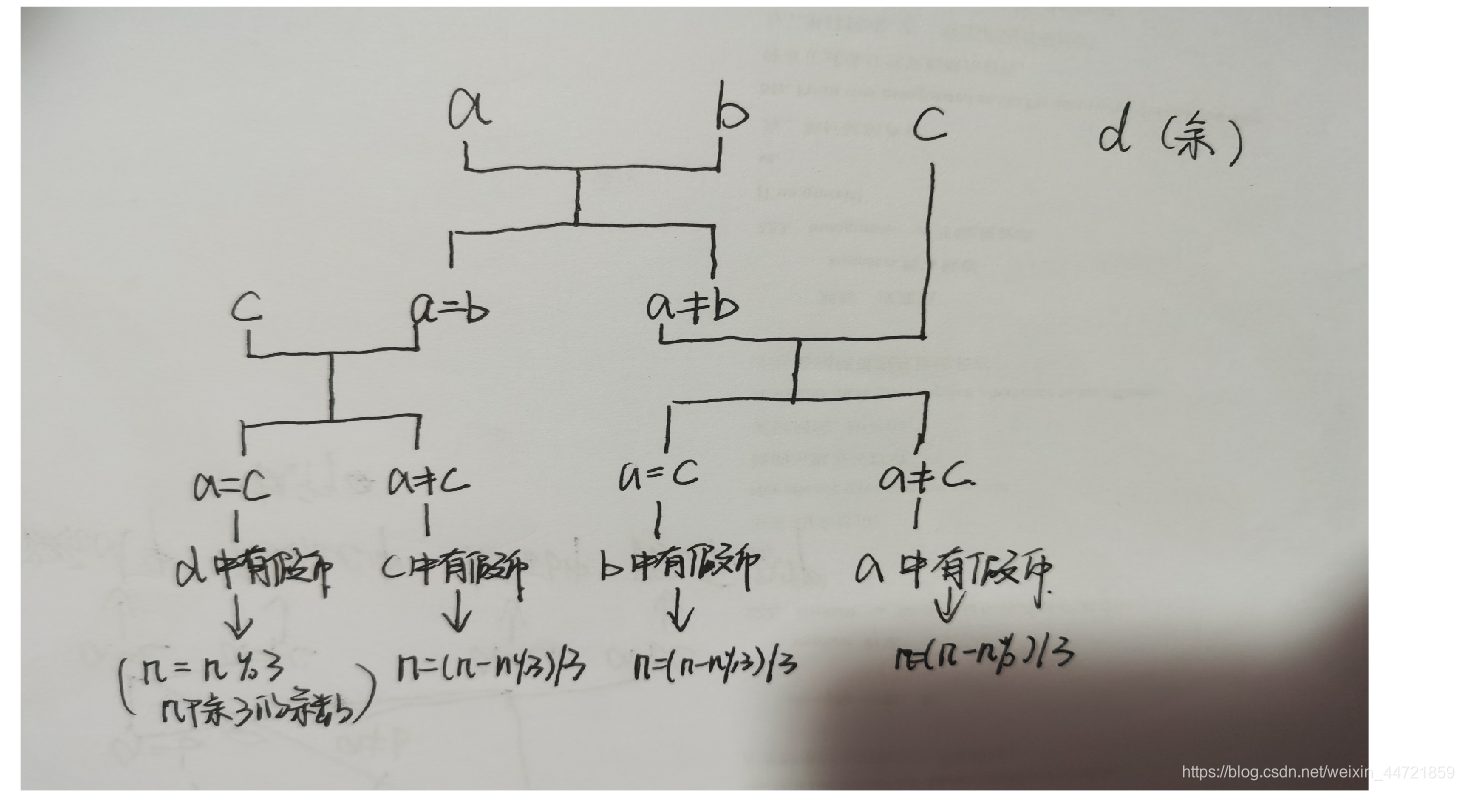 a b c d (余)
c a=b a≠b
a=c a≠c a=c a≠c
d中有假币 c中有假币 b中有假币 a中有假币
(n=n%3 n=(n-n%3)/3 n=(n-n%3)/3 n=(n-n%)/3
n除3的余数)
https://blog.csdn.net/weixin_44721859